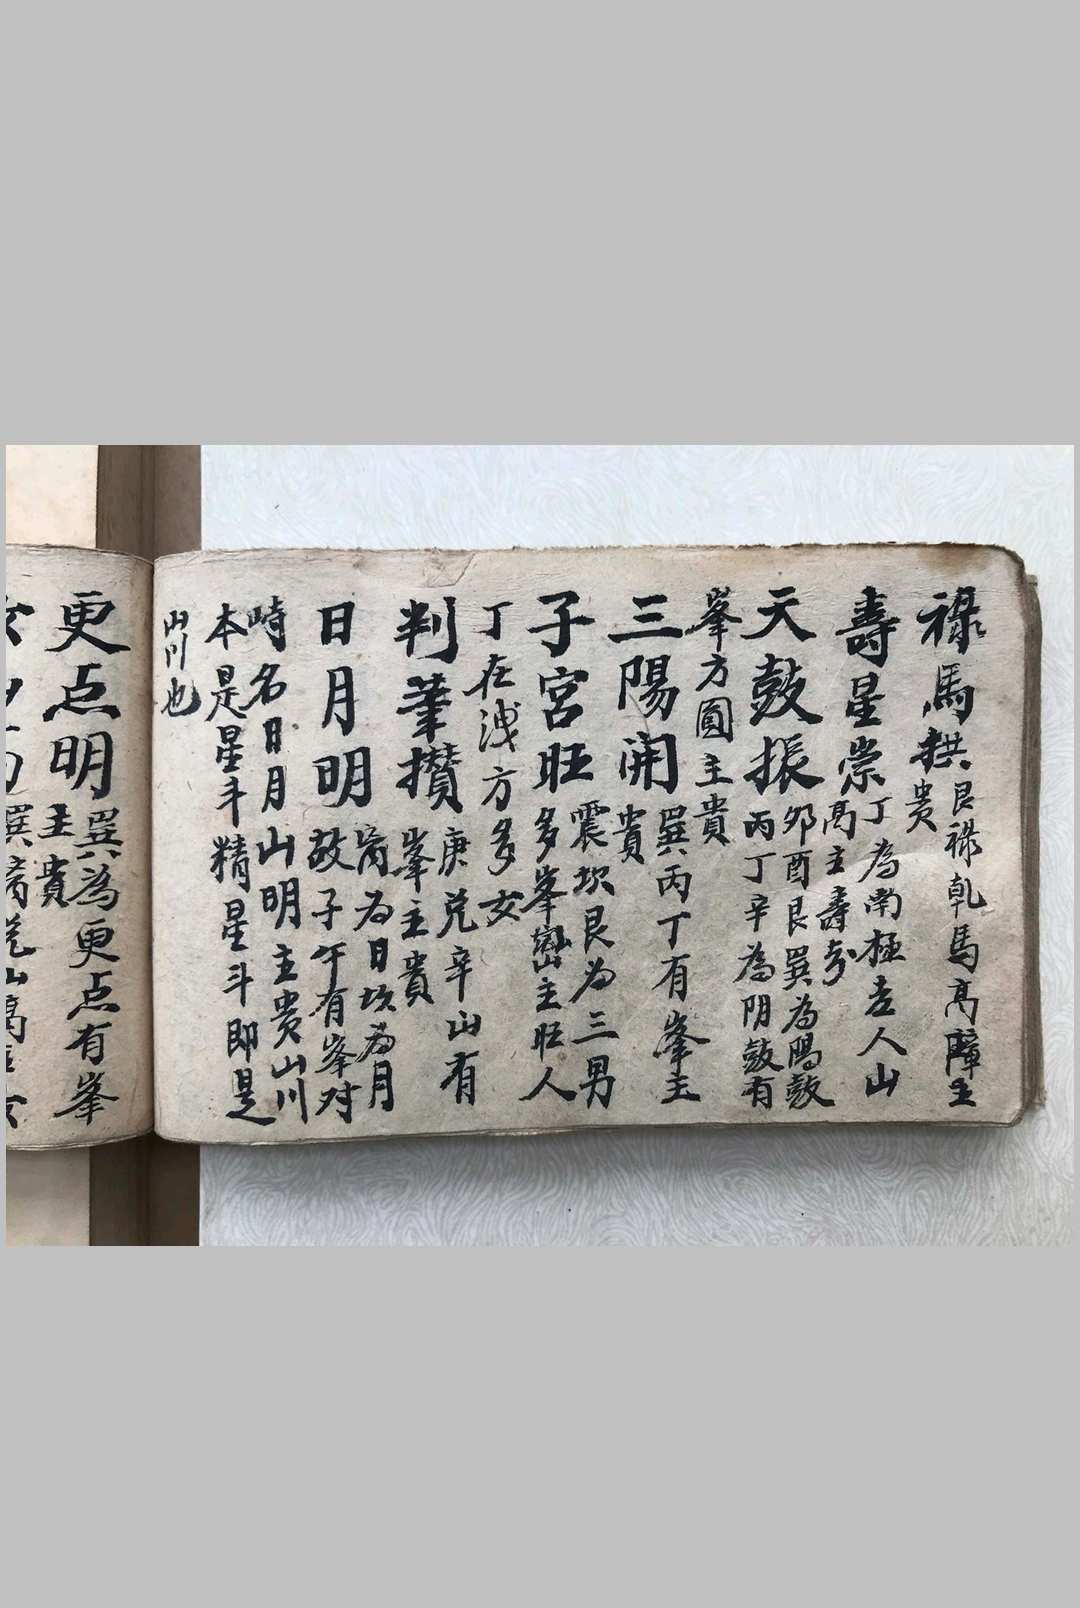 祿馬拱 艮祿乹馬高障主
貴
壽星崇 丁為南極老人山
高主壽
天鼓振 卯酉艮巽为陽鼓
丙丁辛為阴鼓有
峯方圓主貴
三陽開 巽丙丁有峯主
貴
子宮旺 震坎艮为三男
多峯巒主旺人
丁在洩方多女
判筆攢 庚兊辛山有
峯主貴
日月明 离为日坎为月
故子午有峯对
峙名日月山明主贵山川
本是星斗精星斗即是
山川也
更点明 巽為更点有峯
主貴